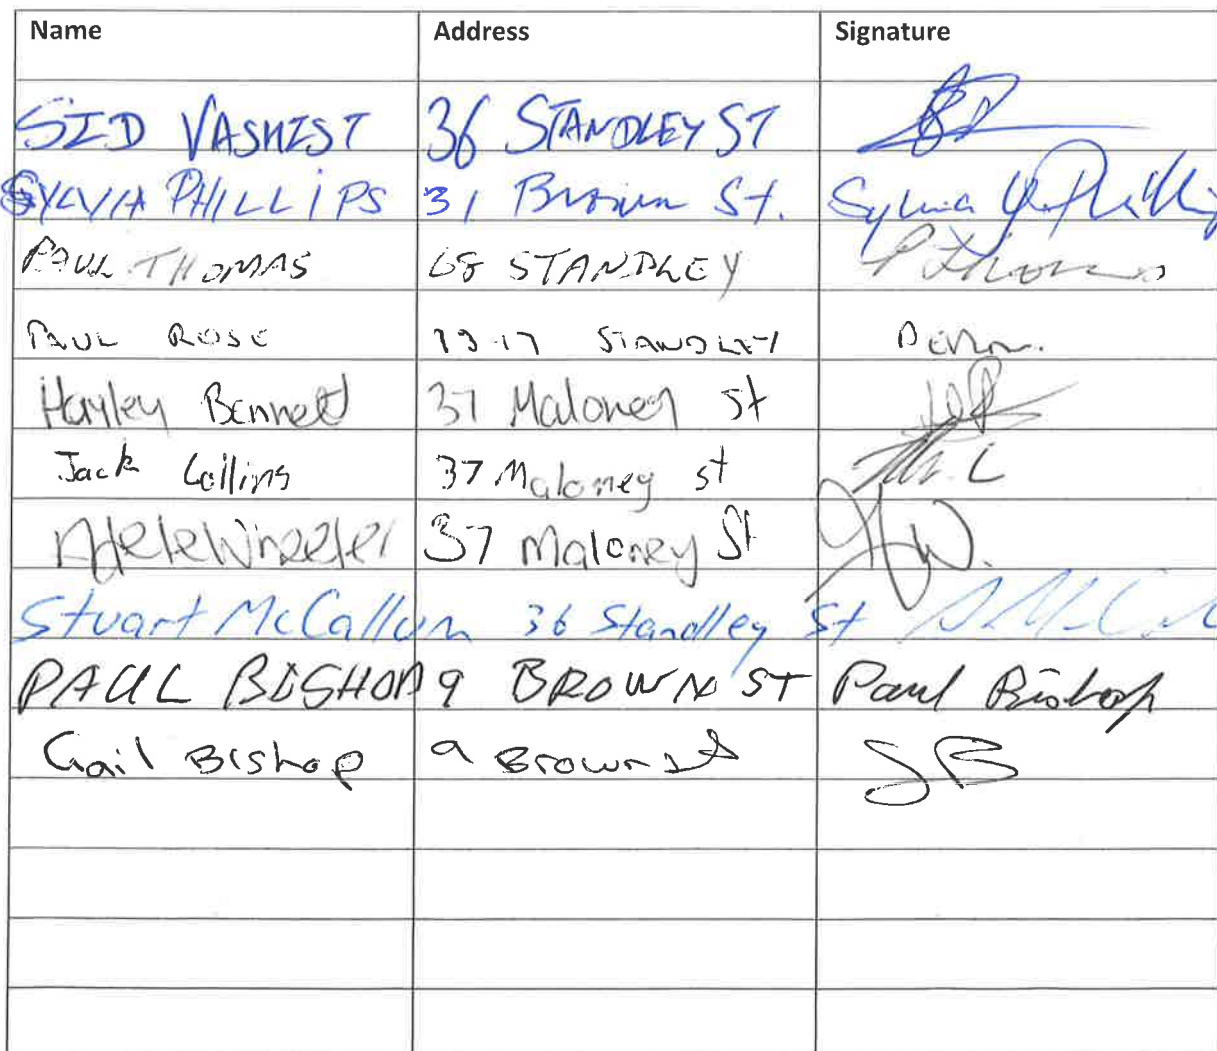 Name Address Signature
SID VASHIST 36 STANDLEY ST
SYLVIA PHILLIPS 31 Brown St. Sylvia Phillips
PAUL THOMAS 68 STANDLEY P Thomas
PAUL ROSE 13-17 STANDLEY
Hayley Bennett 37 Maloney St
Jack Collins 37 Maloney st
Adele Wheeler 37 Maloney St AW.
Stuart McCallum 36 Standley St
PAUL BISHOP 9 BROWN ST Paul Bishop
Gail Bishop 9 Brown st GB